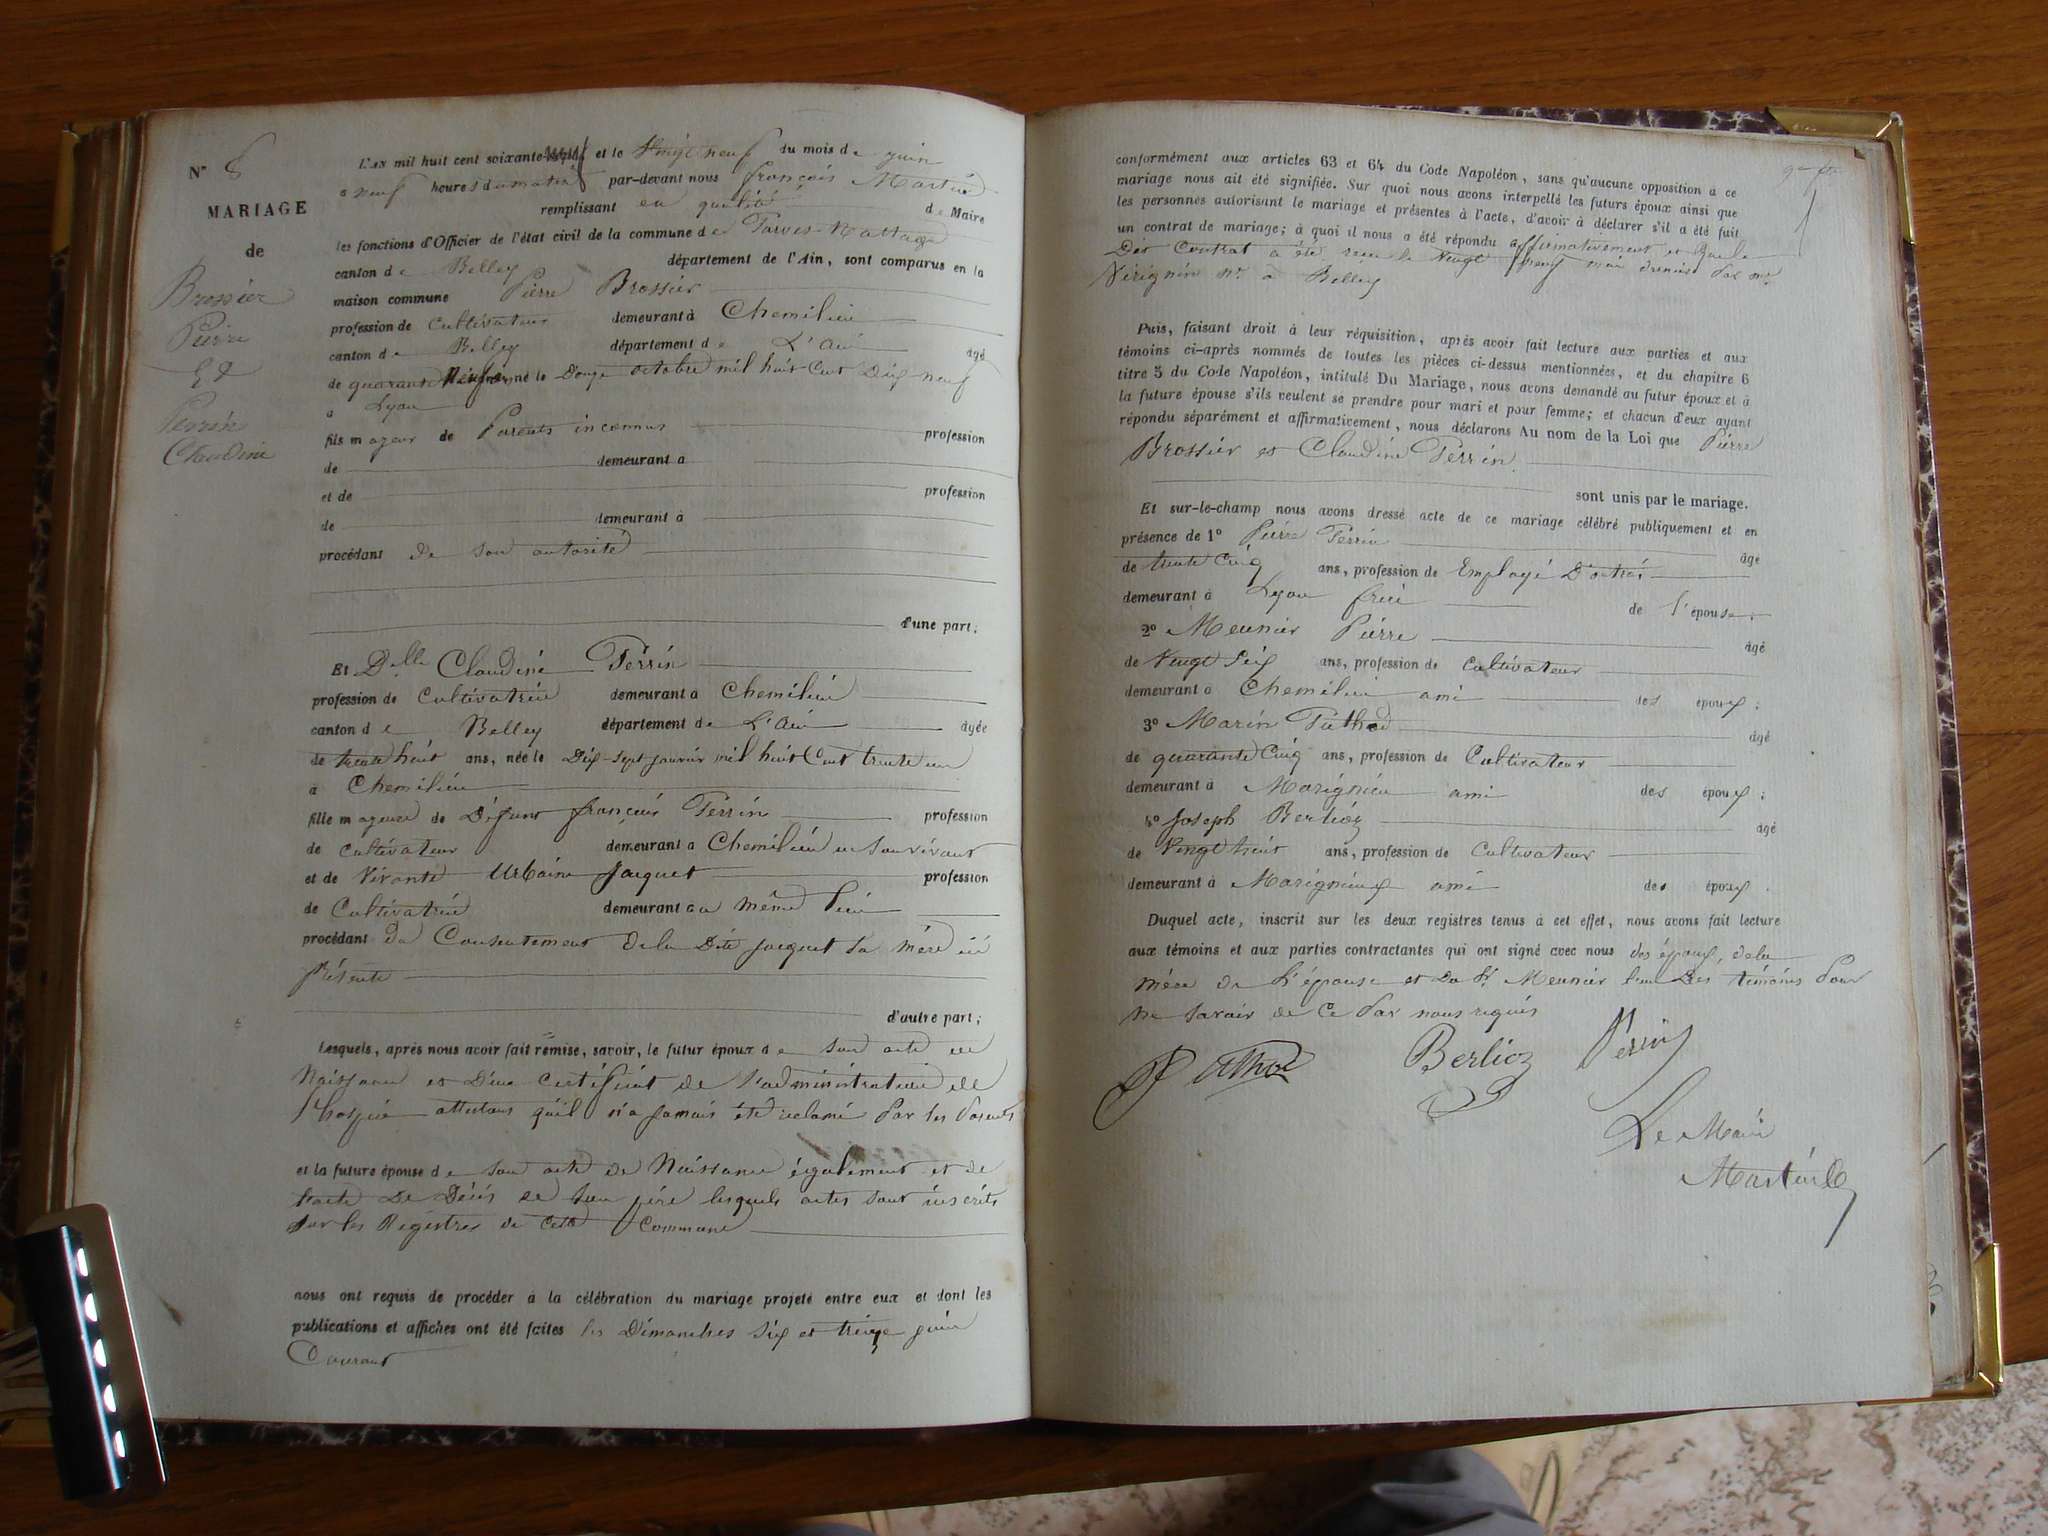 N° 8
MARIAGE
de
Brossier
Pierre
Et
Perrin
Claudine
L'AN mil huit cent soixante neuf et le Vingt neuf du mois de juin
a neuf heures du matin par-devant nous françois Martin
remplissant en qualité de Maire
les fonctions d'Officier de l'état civil de la commune de Parves-Nattage
canton de Belley département de l'Ain, sont comparus en la
maison commune Pierre Brossier
profession de Cultivateur demeurant à Chemilieu
canton de Belley département de L'Ain âgé
de quarante Neuf ans né le Douze octobre mil huit Cent Dix neuf
a Lyon
fils majeur de Parents inconnus profession
de demeurant a
et de profession
de demeurant à
procédant de son autorité
d'une part;
Et D.lle Claudine Perrin
profession de Cultivatrice demeurant à Chemilieu
canton de Belley département de L'Ain âgée
de trente huit ans, née le Dix-Sept janvier mil huit Cent trente un
a Chemilieu
fille majeure de Défunt françois Perrin profession
de cultivateur demeurant a Chemilieu en Son vivant
et de Vivante Urbaine Jacquet profession
de Cultivatrice demeurant au même lieu
procédant du Consentement de la Dite jacquet Sa mère ici
présente
d'autre part;
Lesquels, après nous avoir fait remise, savoir, le futur époux de Son acte de
Naissance et D'un Certificat de l'administration de
l'hospice attestant qu'il n'a jamais été réclamé Par les Parents
et la future épouse de Son acte de Naissance également et de
l'acte De Décès de Son père lesquels actes Sont inscrits
Sur les Registres de Cette Commune
nous ont requis de procéder à la célébration du mariage projeté entre eux et dont les
publications et affiches ont été faites les Dimanches Six et treize juin
Courant
conformément aux articles 63 et 64 du Code Napoléon, sans qu'aucune opposition a ce
mariage nous ait été signifiée. Sur quoi nous avons interpellé les futurs époux ainsi que
les personnes autorisant le mariage et présentes à l'acte, d'avoir à déclarer s'il a été fait
un contrat de mariage; à quoi il nous a été répondu affirmativement et Que le
Dit Contrat a été reçu le Vingt neuf mai dernier Par m.e
Vérignin n.re a Belley
Puis, faisant droit à leur réquisition, après avoir fait lecture aux parties et aux
témoins ci-après nommés de toutes les pièces ci-dessus mentionnées, et du chapitre 6
titre 5 du Code Napoléon, intitulé Du Mariage, nous avons demandé au futur époux et à
la future épouse s'ils veulent se prendre pour mari et pour femme; et chacun d'eux ayant
répondu séparément et affirmativement, nous déclarons Au nom de la Loi que Pierre
Brossier et Claudine Perrin
sont unis par le mariage.
Et sur-le-champ nous avons dressé acte de ce mariage célébré publiquement et en
présence de 1° Pierre Perrin âgé
de trente Cinq ans, profession de Employé D'octroi
demeurant à Lyon frère de l'épouse.
2° Meunier Pierre âgé
de Vingt Six ans, profession de Cultivateur
demeurant a Chemilieu ami des époux;
3° Marin Puthod âgé
de quarante Cinq ans, profession de Cultivateur
demeurant à Marignieu ami des époux;
4° Joseph Berlioz âgé
de Vingt huit ans, profession de Cultivateur
demeurant à Marignieux ami des époux.
Duquel acte, inscrit sur les deux registres tenus à cet effet, nous avons fait lecture
aux témoins et aux parties contractantes qui ont signé avec nous des époux, de la
mère de l'épouse et Du S.r Meunier l'un Des témoins Pour
ne Savoir de Ce Par nous requis
Puthod Berlioz Perrin
Le Maire
Martin